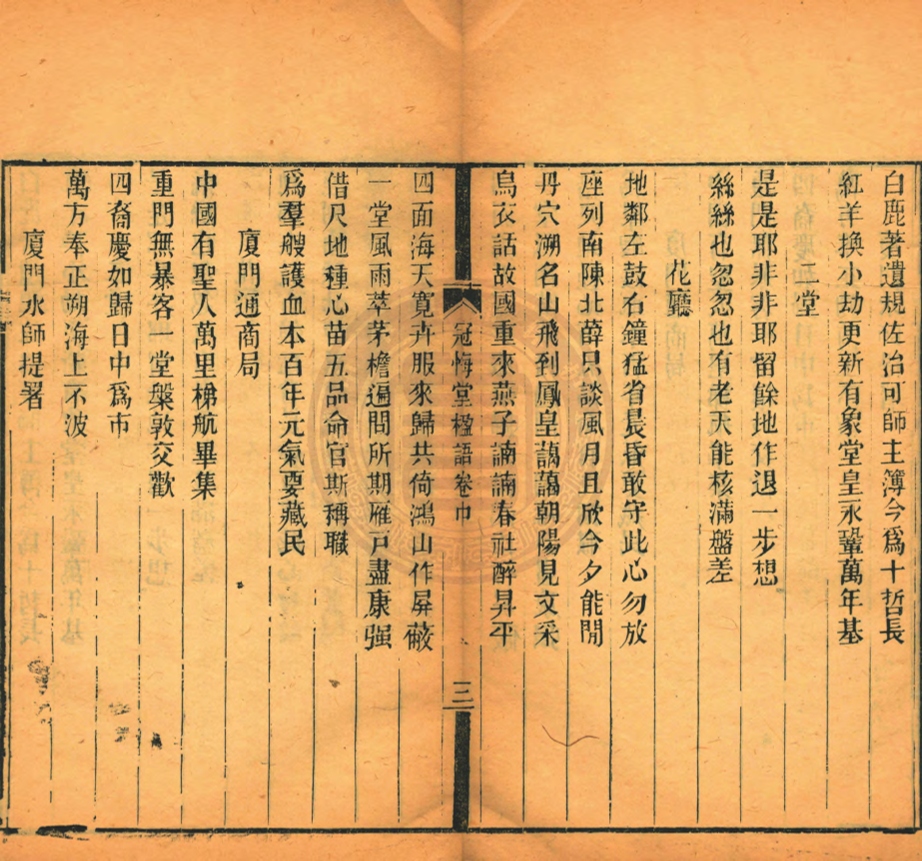 白鹿著遺規佐治可師主簿今爲十哲長
紅羊換小劫更新有象堂皇永鞏萬年基
二堂
是是耶非非耶留餘地作退一步想
絲絲也忽忽也有老天能核滿盤差
花廳
地鄰左鼓右鐘猛省晨昏敢守此心勿放
座列南陳北薛只談風月且欣今夕能閒
丹穴溯名山飛到鳳皇藹藹朝陽見文采
烏衣話故國重來燕子諵諵春社醉昇平
冠悔堂楹語卷中
三
四面海天寬卉服來歸共倚鴻山作屏蔽
一堂風雨萃茅檐遍問所期雁戸盡康强
借尺地種心苗五品命官斯稱職
爲羣艘護血本百年元氣要藏民
廈門通商局
中國有聖人萬里梯航畢集
重門無暴客一堂槃敦交歡
四裔慶如歸日中爲市
萬方奉正朔海上不波
廈門水師提署